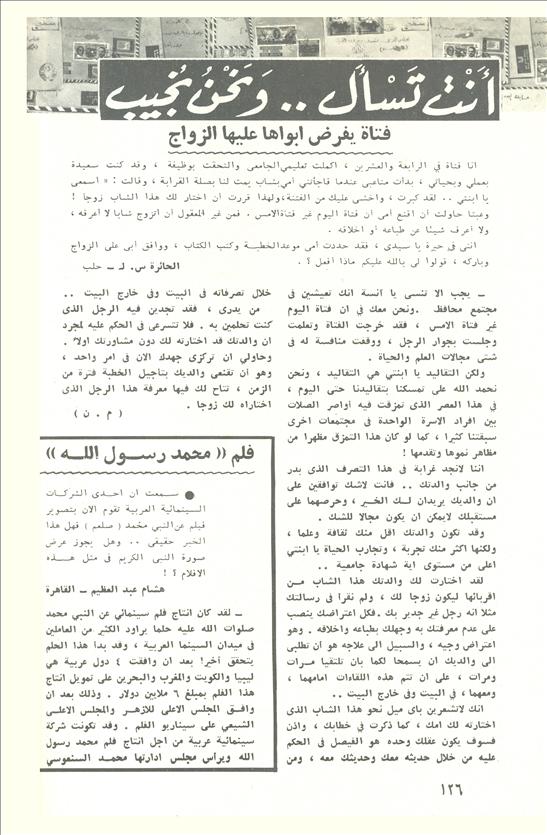 أنت تسأل .. ونحن نجيب
فتاة يفرض ابواها عليها الزواج
انا فتاة في الرابعة والعشرين ، اكملت تعليمي الجامعى والتحقت بوظيفة ، وقد كنت سعيدة
بعملى وبحياتي ، بدأت متاعبى عندما فاجأتنى أمي بشاب يمت لنا بصلة القرابة ، وقالت : « اسمعى
يا ابنتي .. لقد كبرت ، واخشى عليك من الفتنة ، ولهذا قررت أن اختار لك هذا الشاب زوجا !
وعبثا حاولت أن اقنع أمى أن فتاة اليوم غير فتاة الامس . فمن غير المعقول أن اتزوج شابا لا أعرفه ،
ولا أعرف شيئا عن طباعه أو أخلاقه .
اننى في حيرة يا سيدى ، فقد حددت أمى موعد الخطبة وكتب الكتاب ، ووافق أبى على الزواج
وباركه ، قولوا لى بالله عليكم ماذا أفعل ؟ .
الحائرة س. لـ – حلب
– يجب الا تنسى يا آنسة انك تعيشين فى
مجتمع محافظ . ونحن معك فى ان فتاة اليوم
غير فتاة الامس ، فقد خرجت الفتاة وتعلمت
وجلست بجوار الرجل ، ووقفت منافسة له فى
شتى مجالات العلم والحياة .
ولكن التقاليد يا ابنتي هي التقاليد ، ونحن
نحمد الله على تمسكنا بتقاليدنا حتى اليوم ،
في هذا العصر الذى تمزقت فيه أواصر الصلات
بين افراد الاسرة الواحدة فى مجتمعات اخرى
سبقتنا كثيرا ، كما لو كان هذا التمزق مظهرا من
مظاهر نموها وتقدمها !
اننا لانجد غرابة فى هذا التصرف الذى بدر
من جانب والدتك .. فانت لاشك توافقين على
ان والديك يريدان لـك الخـير ، وحرصهما على
مستقبلك لايمكن ان يكون مجالا للشك .
وقد تكون والدتك اقل منك ثقافة وعلما ،
ولكنها اكثر منك تجربة ، وتجارب الحياة يا ابنتي
اعلى من مستوى اية شهادة جامعية ..
لقد اختارت لك والدتك هذا الشاب مـن
اقربائها ليكون زوجا لك ، ولم نقرأ فى رسالتك
مثلا انه رجل غير جدير بك . فكل اعتراضك ينصب
على عدم معرفتك به وجهلك بطباعه واخلاقه . وهو
اعتراض وجيه ، والسبيل الى علاجه هو ان تطلبى
الى والديك ان يسمحا لكما بان تلتقيا مـرات
ومرات ، على ان تتم هذه اللقاءات امامهما ،
ومعهما ، فى البيت وفى خارج البيت ..
انك لاتشعرين باى ميل نحو هذا الشاب الذى
اختارته لك امك ، كما ذكرت فى خطابك ، واذن
فسوف يكون عقلك وحده هو الفيصل فى الحكم
عليه من خلال حديثه معك وحديثك معه ، ومن
خلال تصرفاته فى البيت وفى خارج البيت ..
من يدرى ، فقد تجدين فيه الرجل الذى
كنت تحلمين به . فلا تتسرعى فى الحكم عليه لمجرد
ان والدتك قد اختارته لك دون مشاورتك اولا .
وحاولى ان تركزى جهدك الان فى امر واحد ،
وهو أن تقنعى والديك بتأجيل الخطبة فترة من
الزمن ، تتاح لك فيها معرفة هذا الرجل الذى
اختاراه لك زوجا .
( م . ن )
فلم « محمد رسـول اللـه »
● سـمعت ان احدى الشركات
السينمائية العربية تقوم الان بتصوير
فيلم عن النبي محمد ( صلعم ) فهل هذا
الخبر حقيقى .. وهل يجوز عرض
صورة النبى الكريم فى مثل هـذه
الافلام ؟ !
هشام عبد العظيم – القاهرة
– لقد كان انتاج فلم سينمائي عن النبي محمد
صلوات الله عليه حلما يراود الكثير من العاملين
فى ميدان السينما العربية ، وقد بدأ هذا الحلم
يتحقق أخيرا بعد ان وافقت ٤ دول عربية هي
ليبيا والكويت والمغرب والبحرين على تمويل انتاج
هذا الفلم بمبلغ ٦ ملايين دولار . وذلك بعد ان
وافـق المجلس الاعلى للازهـر والمجلس الاعلـى
الشيعى على سيناريو الفلم . وقد تكونت شركة
سينمائية عربية من اجل انتاج فلم محمد رسول
الله ويراس مجلس ادارتها محمـد السنعوسي
١٢٦